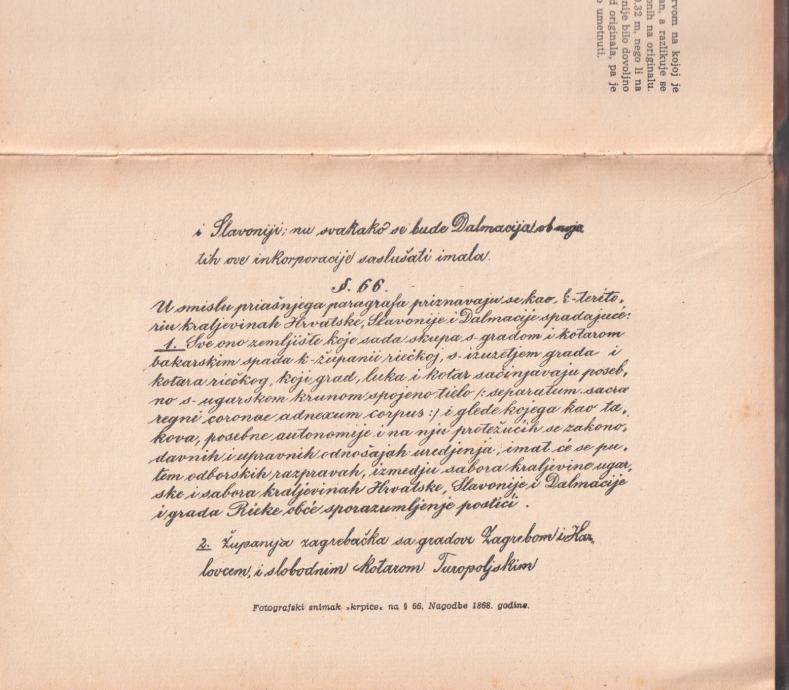 rvom na kojoj je
an, a razlikuje se
onih na originalu.
0.32 m, nego li na
nije bilo dovoljno
d originala, pa je
o umetnuti.
i Slavoniji; nu svakako se bude Dalmacija ob
tih ove inkorporacije saslušati imala.
§. 66.
U smislu priašnjega paragrafa priznavaju se kao k-terito-
riu kraljevinah Hrvatske, Slavonije i Dalmacije spadajuće:
1. Sve ono zemljište koje sada skupa s-gradom i kotarom
bakarskim spada k-županii riečkoj, s-izuzetjem grada i
kotara riečkog, koji grad, luka i kotar sačinjavaju poseb-
no s-ugarskom krunom spojeno tielo /: separatum sacrae
regni coronae adnexum corpus :/ i glede kojega kao ta-
kova, posebne autonomije i na nju protežućih se zakono-
davnih i upravnih odnošajah uredjenja, imat će se pu-
tem odborskih razpravah, izmedju sabora kraljevine ugar-
ske i sabora kraljevinah Hrvatske, Slavonije i Dalmacije
i grada Rieke obće sporazumljenje postići.
2. Županija zagrebačka sa gradovi Zagrebom i Kar-
lovcem, i slobodnim kotarom Turopoljskim
Fotografski snimak »krpice« na § 66. Nagodbe 1868. godine.